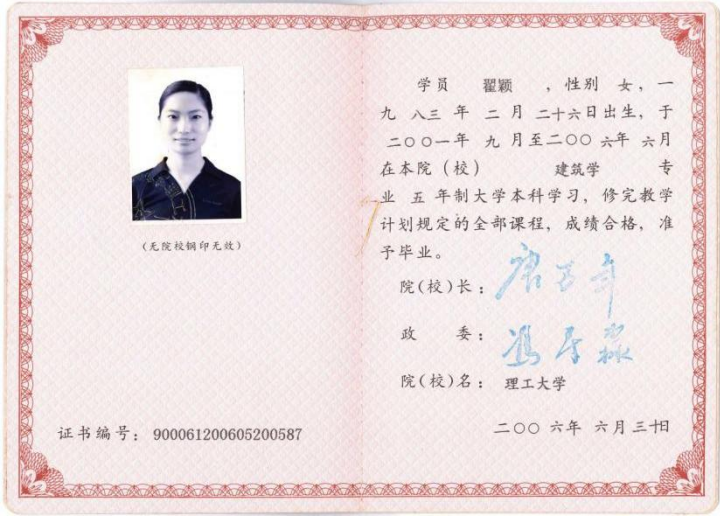 (无院校钢印无效)
证书编号：900061200605200587
学员 翟颖 ，性别 女，一
九 八三 年 二 月 二十六日出生，于
二〇〇一年 九 月至二〇〇六年 六月
在本院（校） 建筑学 专
业 五 年制大学本科学习，修完教学
计划规定的全部课程，成绩合格，准
予毕业。
院(校)长：
政 委：
院(校)名：理工大学
二〇〇六年 六月三十日